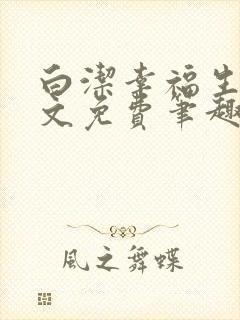 白潔幸福生
文免費筆趣
風之舞蝶